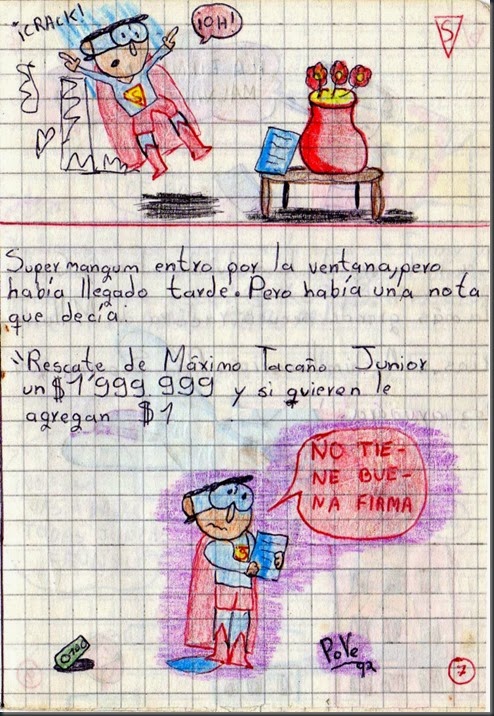 ¡CRACK!
¡OH!
S
Supermangum entro por la ventana, pero
había llegado tarde. Pero había una nota
que decía:
"Rescate de Máximo Tacaño Junior
un $1'999 999 y si quieren le
agregan $1
NO TIE-
NE BUE-
NA FIRMA
PoVe
92
7